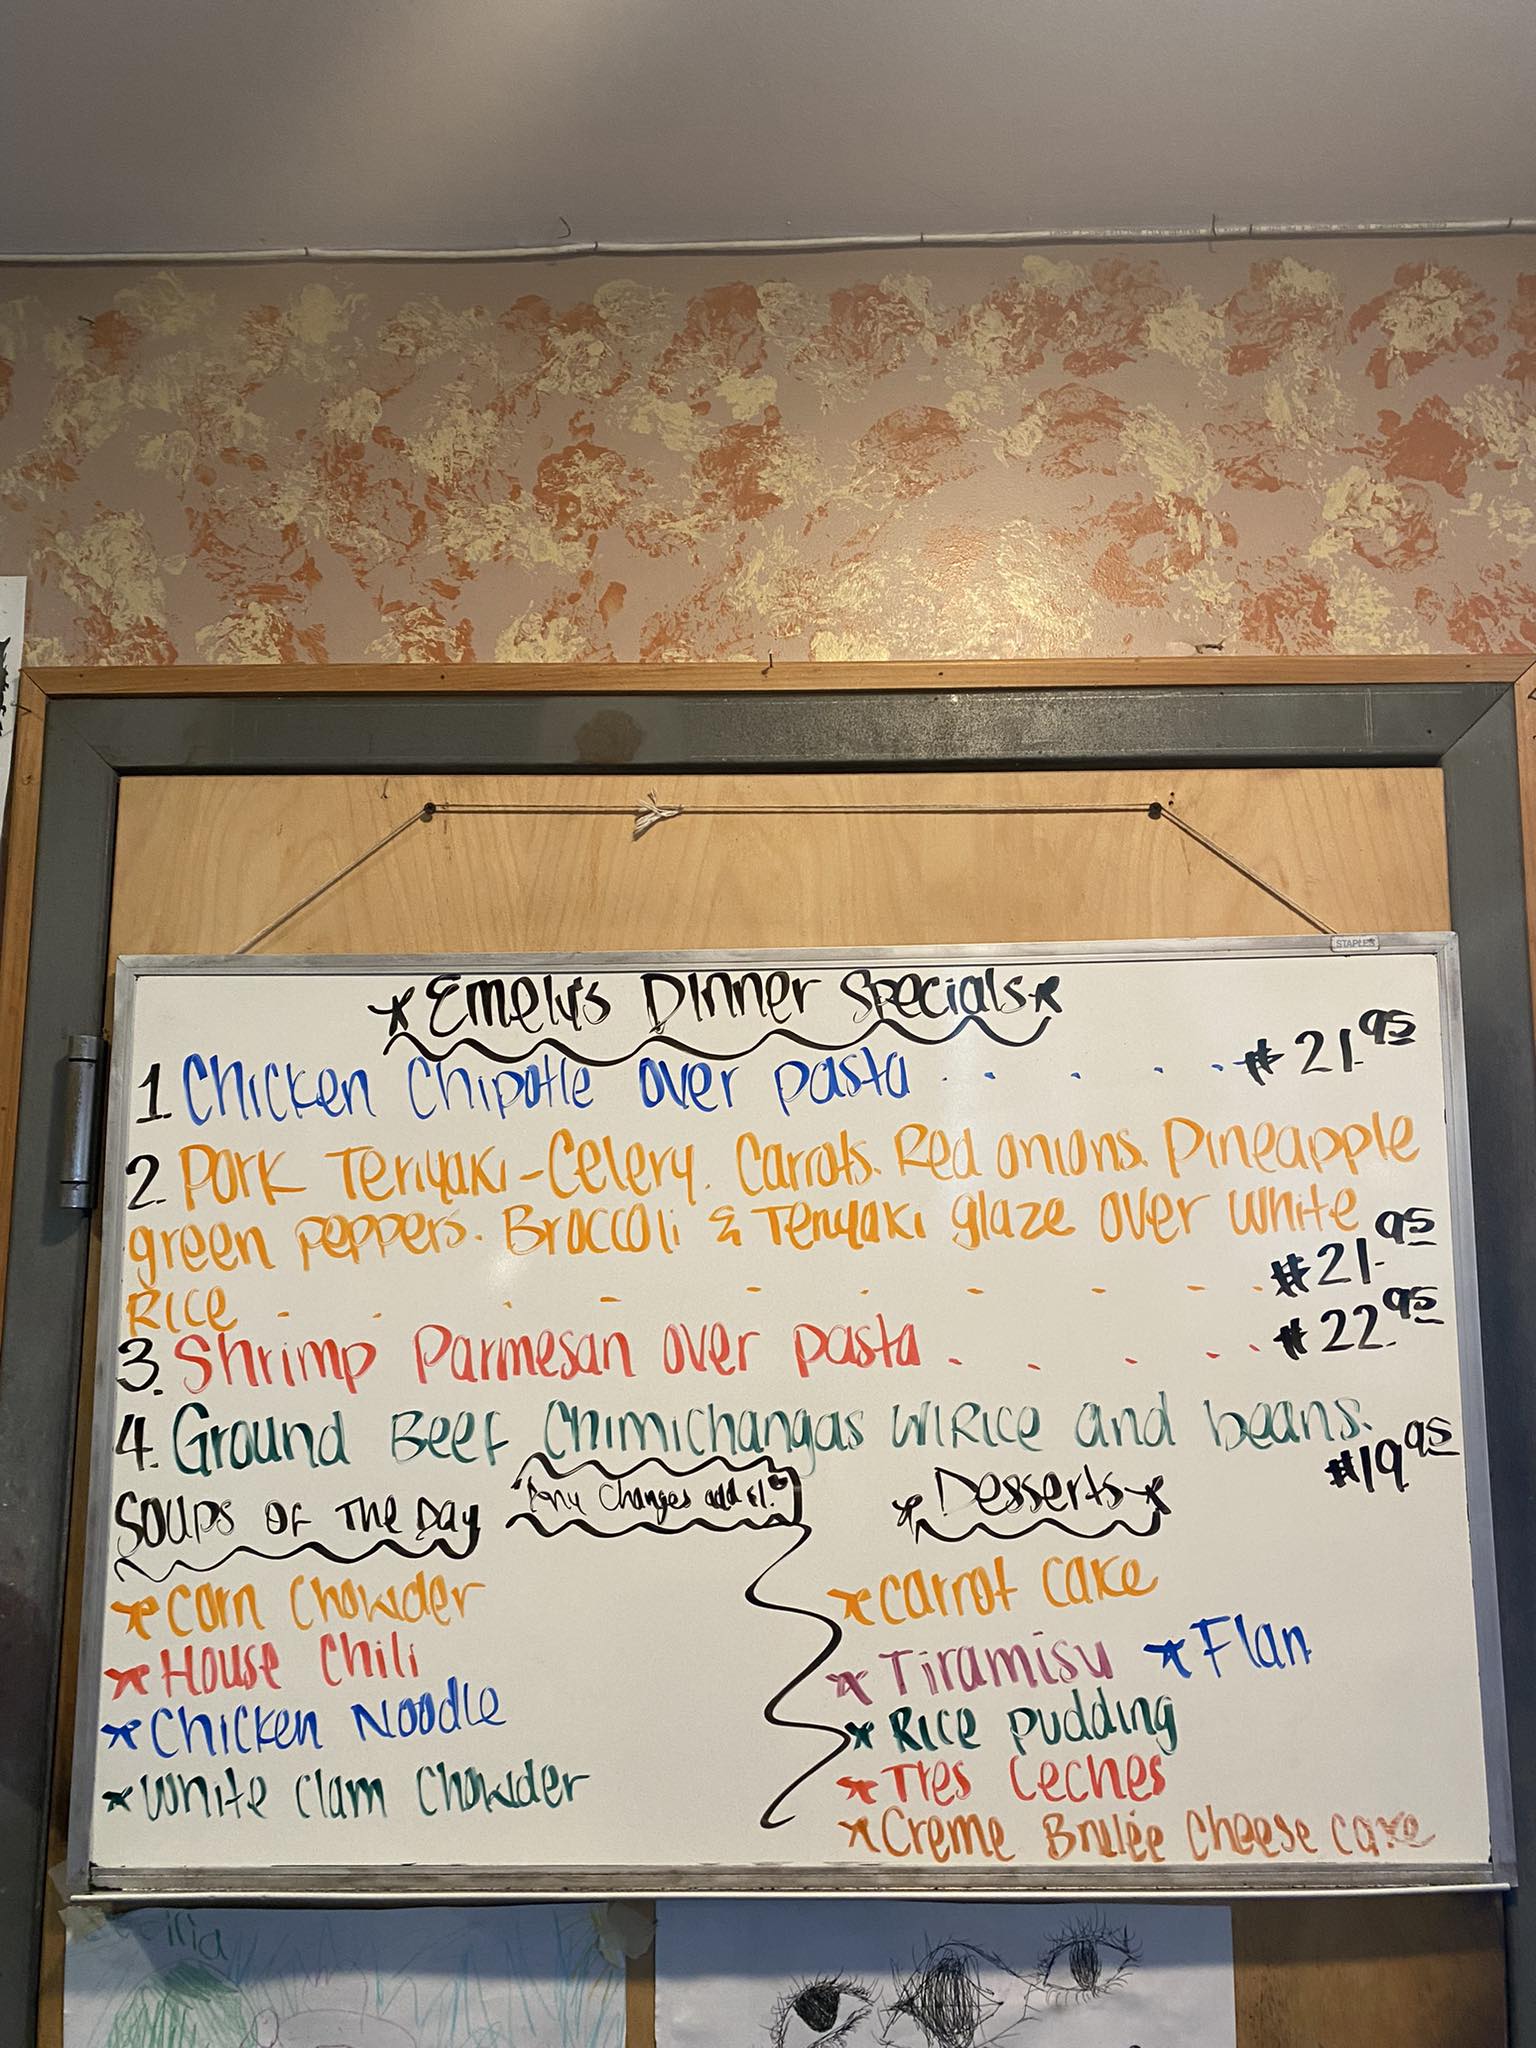 STAPLES
Emely's Dinner Specials
1. Chicken Chipotle over pasta . . . . . $21.95
2. Pork Teriyaki-Celery. Carrots. Red onions. Pineapple
green peppers. Broccoli & Teriyaki glaze over white
Rice . . . . . . . . . . $21.95
3. Shrimp Parmesan over pasta . . . . . $22.95
4. Ground Beef Chimichangas W/Rice and beans.
$19.95
Soups of The Day
"Any Changes add $1."
Corn Chowder
House Chili
Chicken Noodle
White Clam Chowder
Desserts
Carrot Cake
Tiramisu Flan
Rice pudding
Tres Leches
Creme Brulée Cheese cake